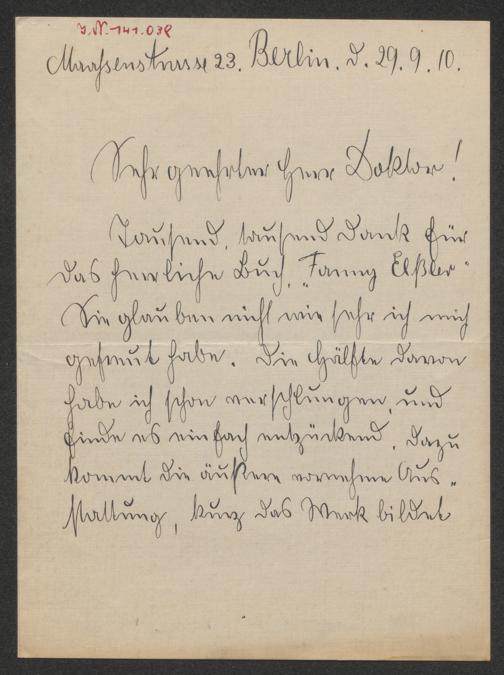 J.N. 141.038
Maaßenstrasse 23. Berlin. d. 29.9.10.
Sehr geehrter Herr Doktor!
Tausend, tausend Dank für
das herrliche Buch, "Fanny Elßler"
Sie glauben nicht wie sehr ich mich
gefreut habe. Die Hälfte davon
habe ich schon verschlungen, und
finde es einfach entzückend. Dazu
kommt die äußere vornehme Aus-
stattung, kurz das Werk bildet